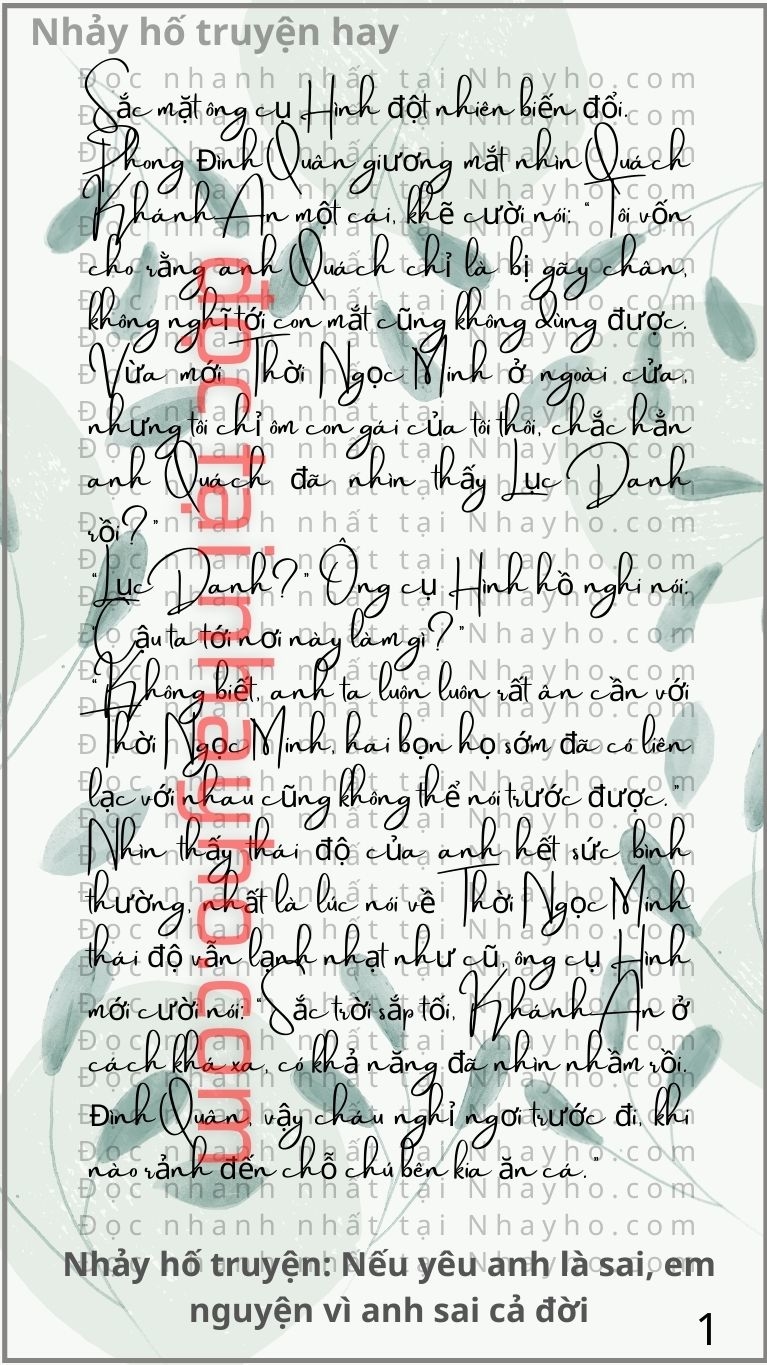 Nhảy hố truyện hay
Sắc mặt ông cụ Hình đột nhiên biến đổi.
Phong Đình Quân giương mắt nhìn Quách
Khánh An một cái, khẽ cười nói: “Tôi vốn
cho rằng anh Quách chỉ là bị gãy chân,
không nghĩ tới con mắt cũng không dùng được.
Vừa mới Thời Ngọc Minh ở ngoài cửa,
nhưng tôi chỉ ôm con gái của tôi thôi, chắc hẳn
anh Quách đã nhìn thấy Lục Danh
rồi?”
“Lục Danh?” Ông cụ Hình hồ nghi nói:
“Cậu ta tới nơi này làm gì?”
“Không biết, anh ta luôn luôn rất ân cần với
Thời Ngọc Minh, hai bọn họ sớm đã có liên
lạc với nhau cũng không thể nói trước được.”
Nhìn thấy thái độ của anh hết sức bình
thường, nhất là lúc nói về Thời Ngọc Minh
thái độ vẫn lạnh nhạt như cũ, ông cụ Hình
mới cười nói: “Sắc trời sắp tối, Khánh An ở
cách khá xa, có khả năng đã nhìn nhầm rồi.
Đình Quân, vậy cháu nghỉ ngơi trước đi, khi
nào rảnh đến chỗ chú bên kia ăn cá.”
đọc tại nhayho.com
Đọc nhanh nhất tại Nhayho.com
Nhảy hố truyện: Nếu yêu anh là sai, em
nguyện vì anh sai cả đời
1